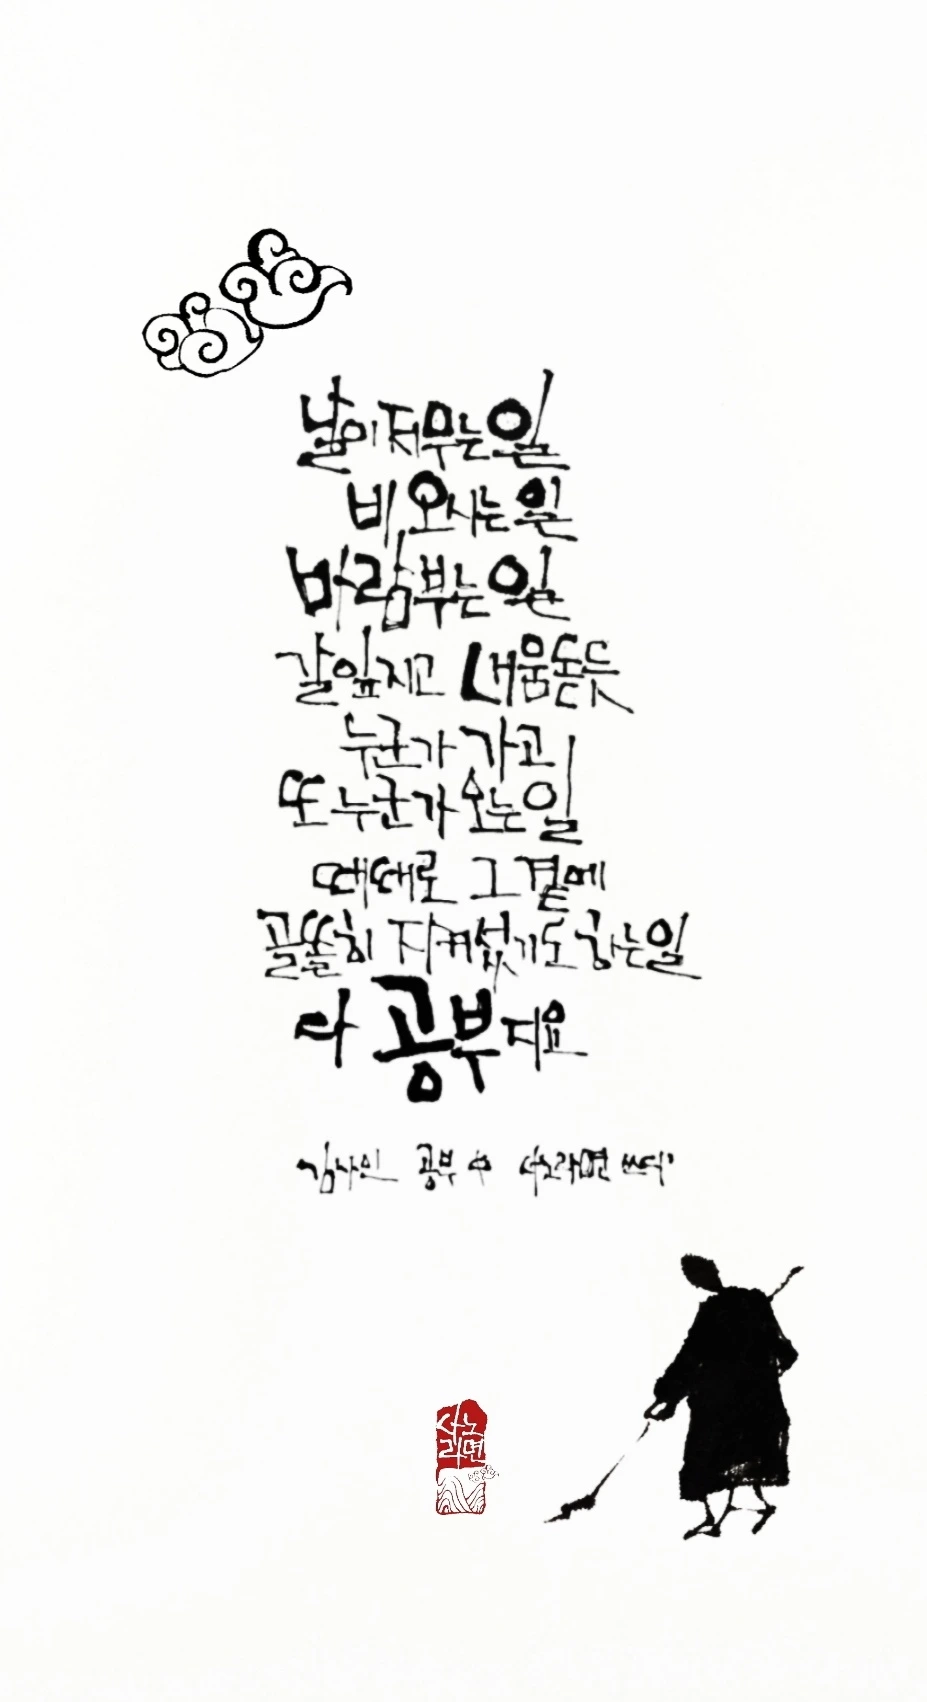 날이 저무는 일
비 오시는 일
바람 부는 일
갈잎 지고 새움 돋듯
누군가 가고
또 누군가 오는 일
때때로 그 곁에
골똘히 지켜섰기도 하는 일
다 공부지요
김사인 공부 中 사노라면 쓰다
사노
라면